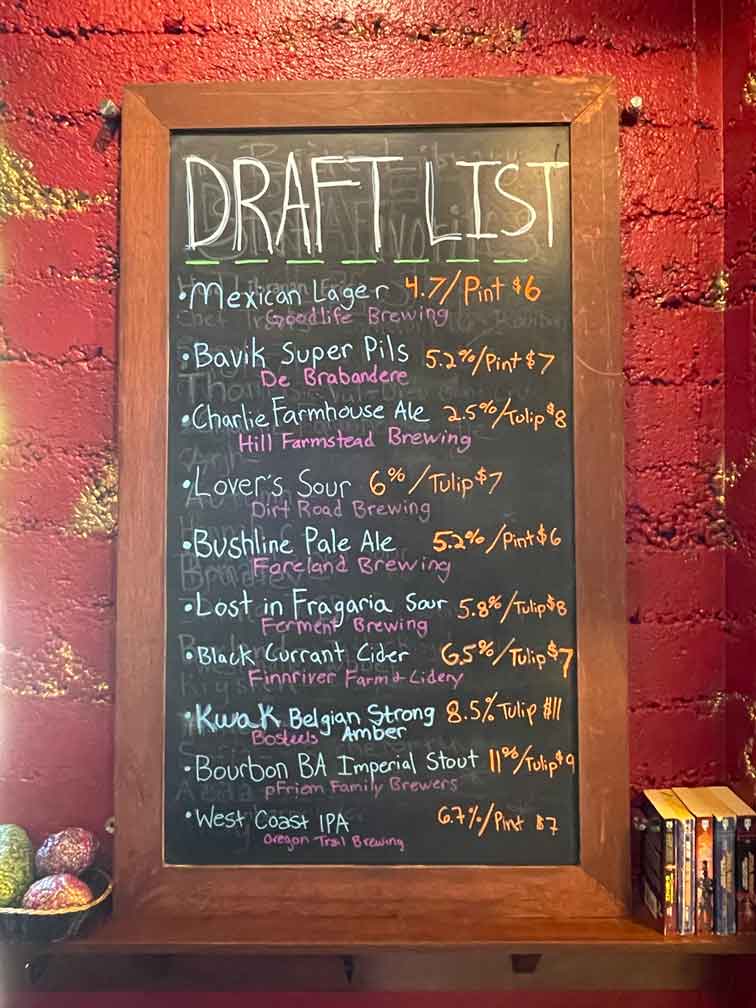 DRAFT LIST
• Mexican Lager 4.7/Pint $6
Goodlife Brewing
• Bavik Super Pils 5.2%/Pint $7
De Brabandere
• Charlie Farmhouse Ale 2.5%/Tulip $8
Hill Farmstead Brewing
• Lover's Sour 6%/Tulip $7
Dirt Road Brewing
• Bushline Pale Ale 5.2%/Pint $6
Foreland Brewing
• Lost in Fragaria Sour 5.8%/Tulip $8
Ferment Brewing
• Black Currant Cider 6.5%/Tulip $7
Finnriver Farm & Cidery
• Kwak Belgian Strong 8.5% Tulip $11
Bosteels Amber
• Bourbon BA Imperial Stout 11%/Tulip $9
pFriem Family Brewers
• West Coast IPA 6.7%/Pint $7
Oregon Trail Brewing